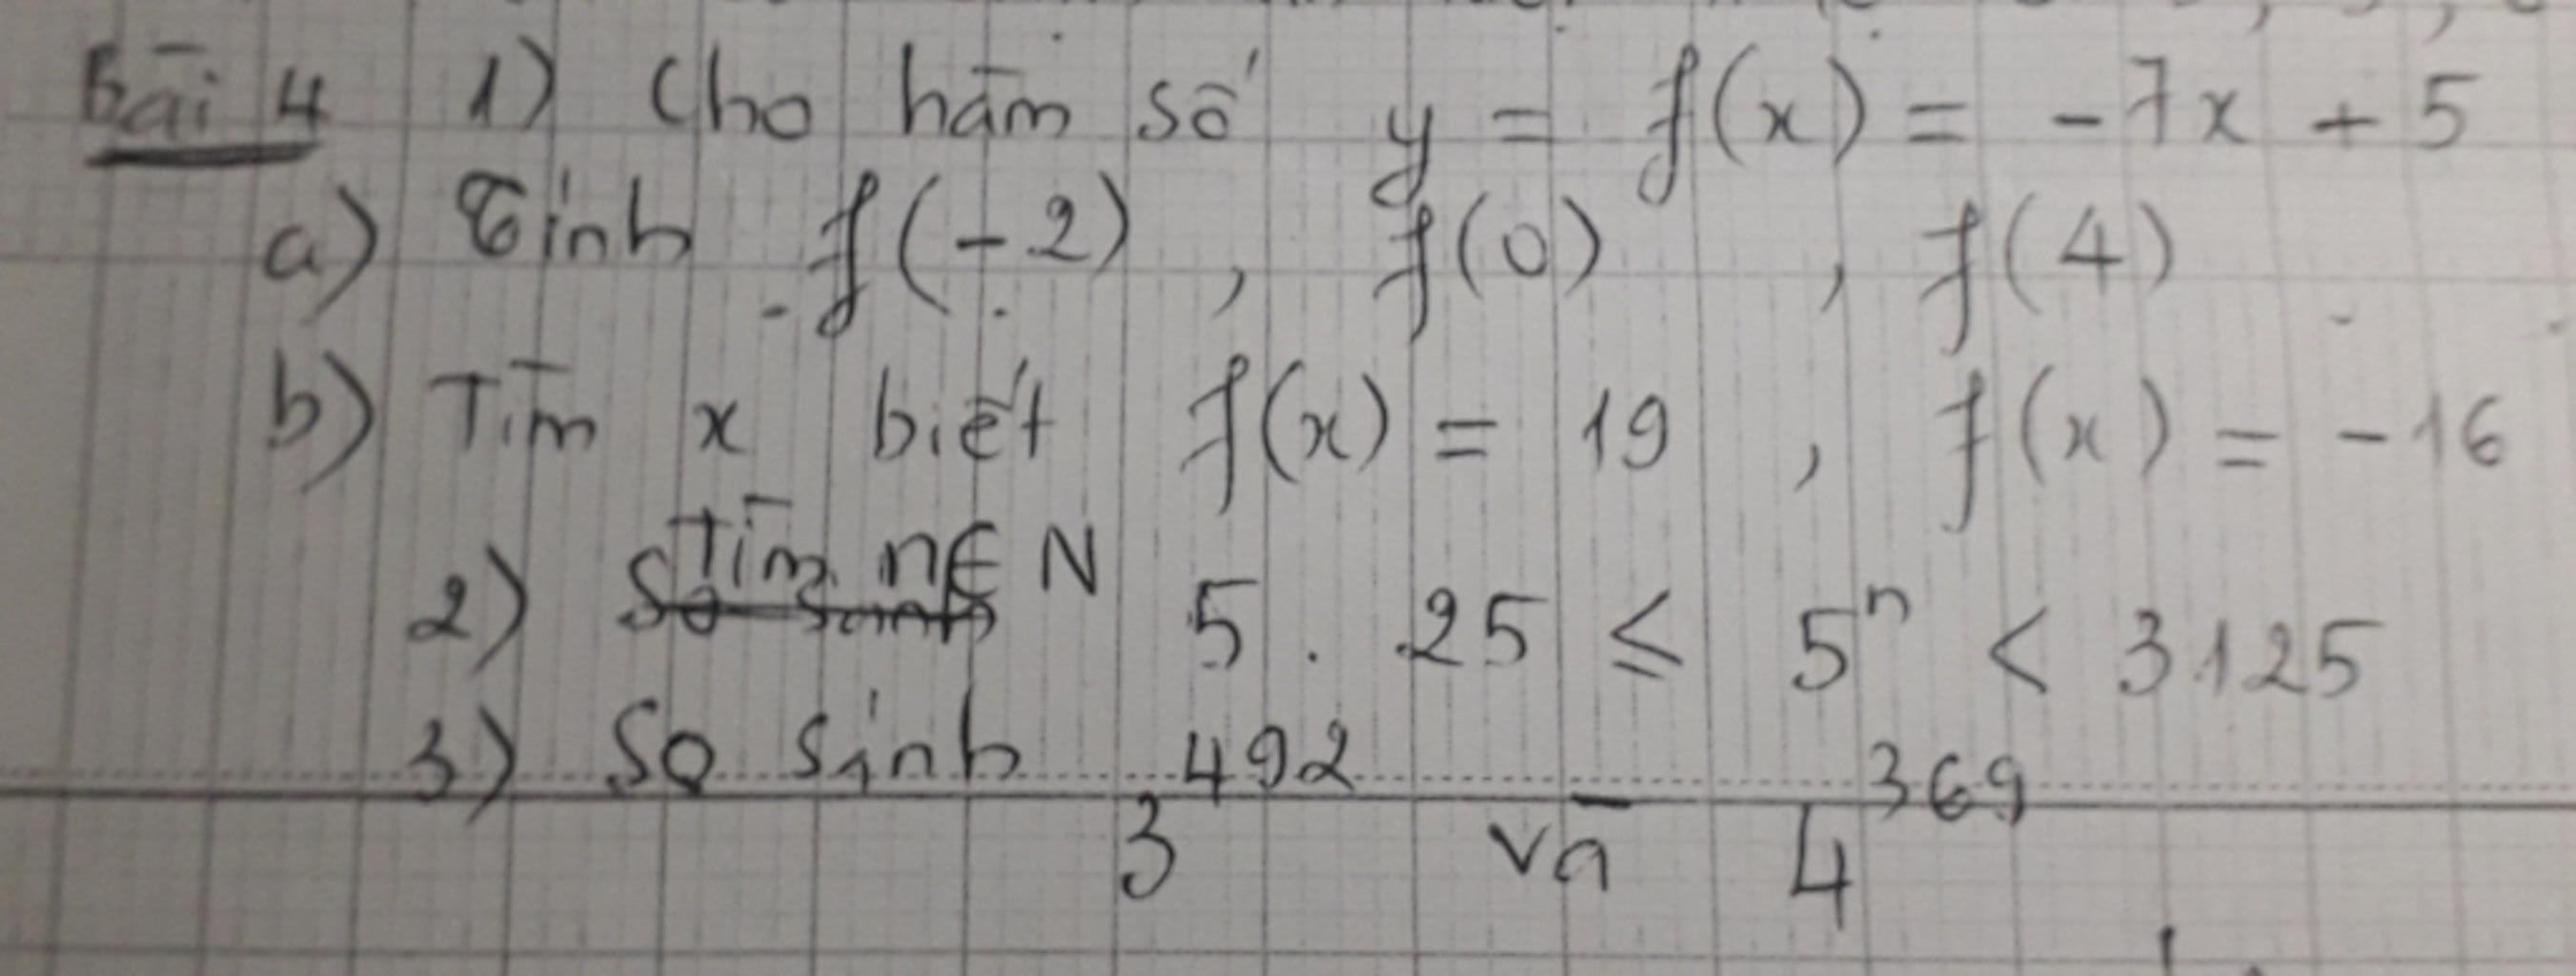 Bài 4 1) Cho hàm số y = f(x) = -7x + 5
a) Tính f(-2) , f(0) , f(4)
b) Tìm x biết f(x) = 19 , f(x) = -16
2) Tìm n ∈ N 5 . 25 ≤ 5ⁿ < 3125
3) So sính 3⁴⁹² và 4³⁶⁹